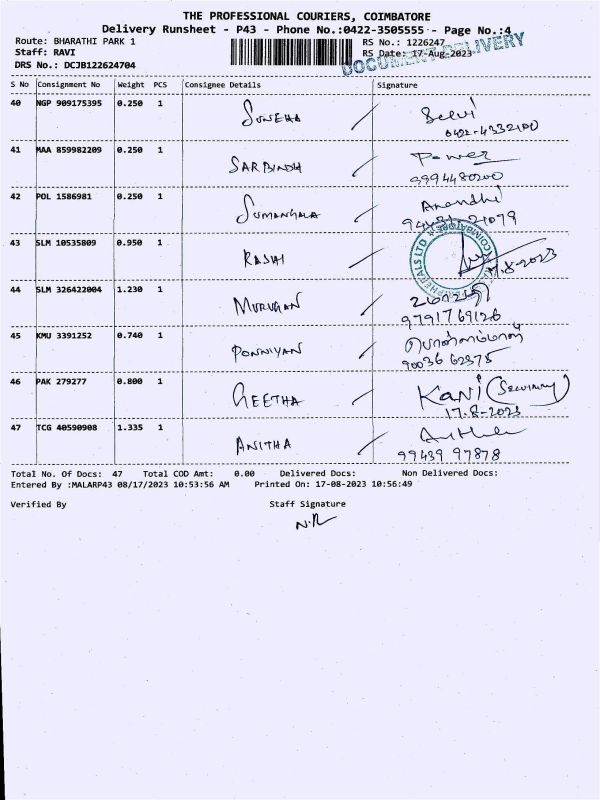 THE PROFESSIONAL COURIERS, COIMBATORE
Delivery Runsheet - P43 - Phone No.:0422-3505555 - Page No.:4
Route: BHARATHI PARK 1 RS No.: 1226247
Staff: RAVI RS Date: 17-Aug-2023
DOCUMENT DELIVERY
DRS No.: DCJB122624704
S No Consignment No Weight PCS Consignee Details Signature
40 NGP 909175395 0.250 1 SUNEHA / Selvi
0422-4332100
41 MAA 859982209 0.250 1 SARBINDH /
9994480200
42 POL 1586981 0.250 1 SUMANGALA / Anandhi
21079
43 SLM 10535809 0.950 1 RASHI /
.8-2023
44 SLM 326422004 1.230 1 MURUGAN /
9791769126
45 KMU 3391252 0.740 1 PONNIYAN / பொன்னம்மாள்
90036 62375
46 PAK 279277 0.800 1 GEETHA / Kani (Security)
17.8-2023
47 TCG 40590908 1.335 1 ANITHA /
99439 97878
Total No. Of Docs: 47 Total COD Amt: 0.00 Delivered Docs: Non Delivered Docs:
Entered By :MALARP43 08/17/2023 10:53:56 AM Printed On: 17-08-2023 10:56:49
Verified By Staff Signature
N.R